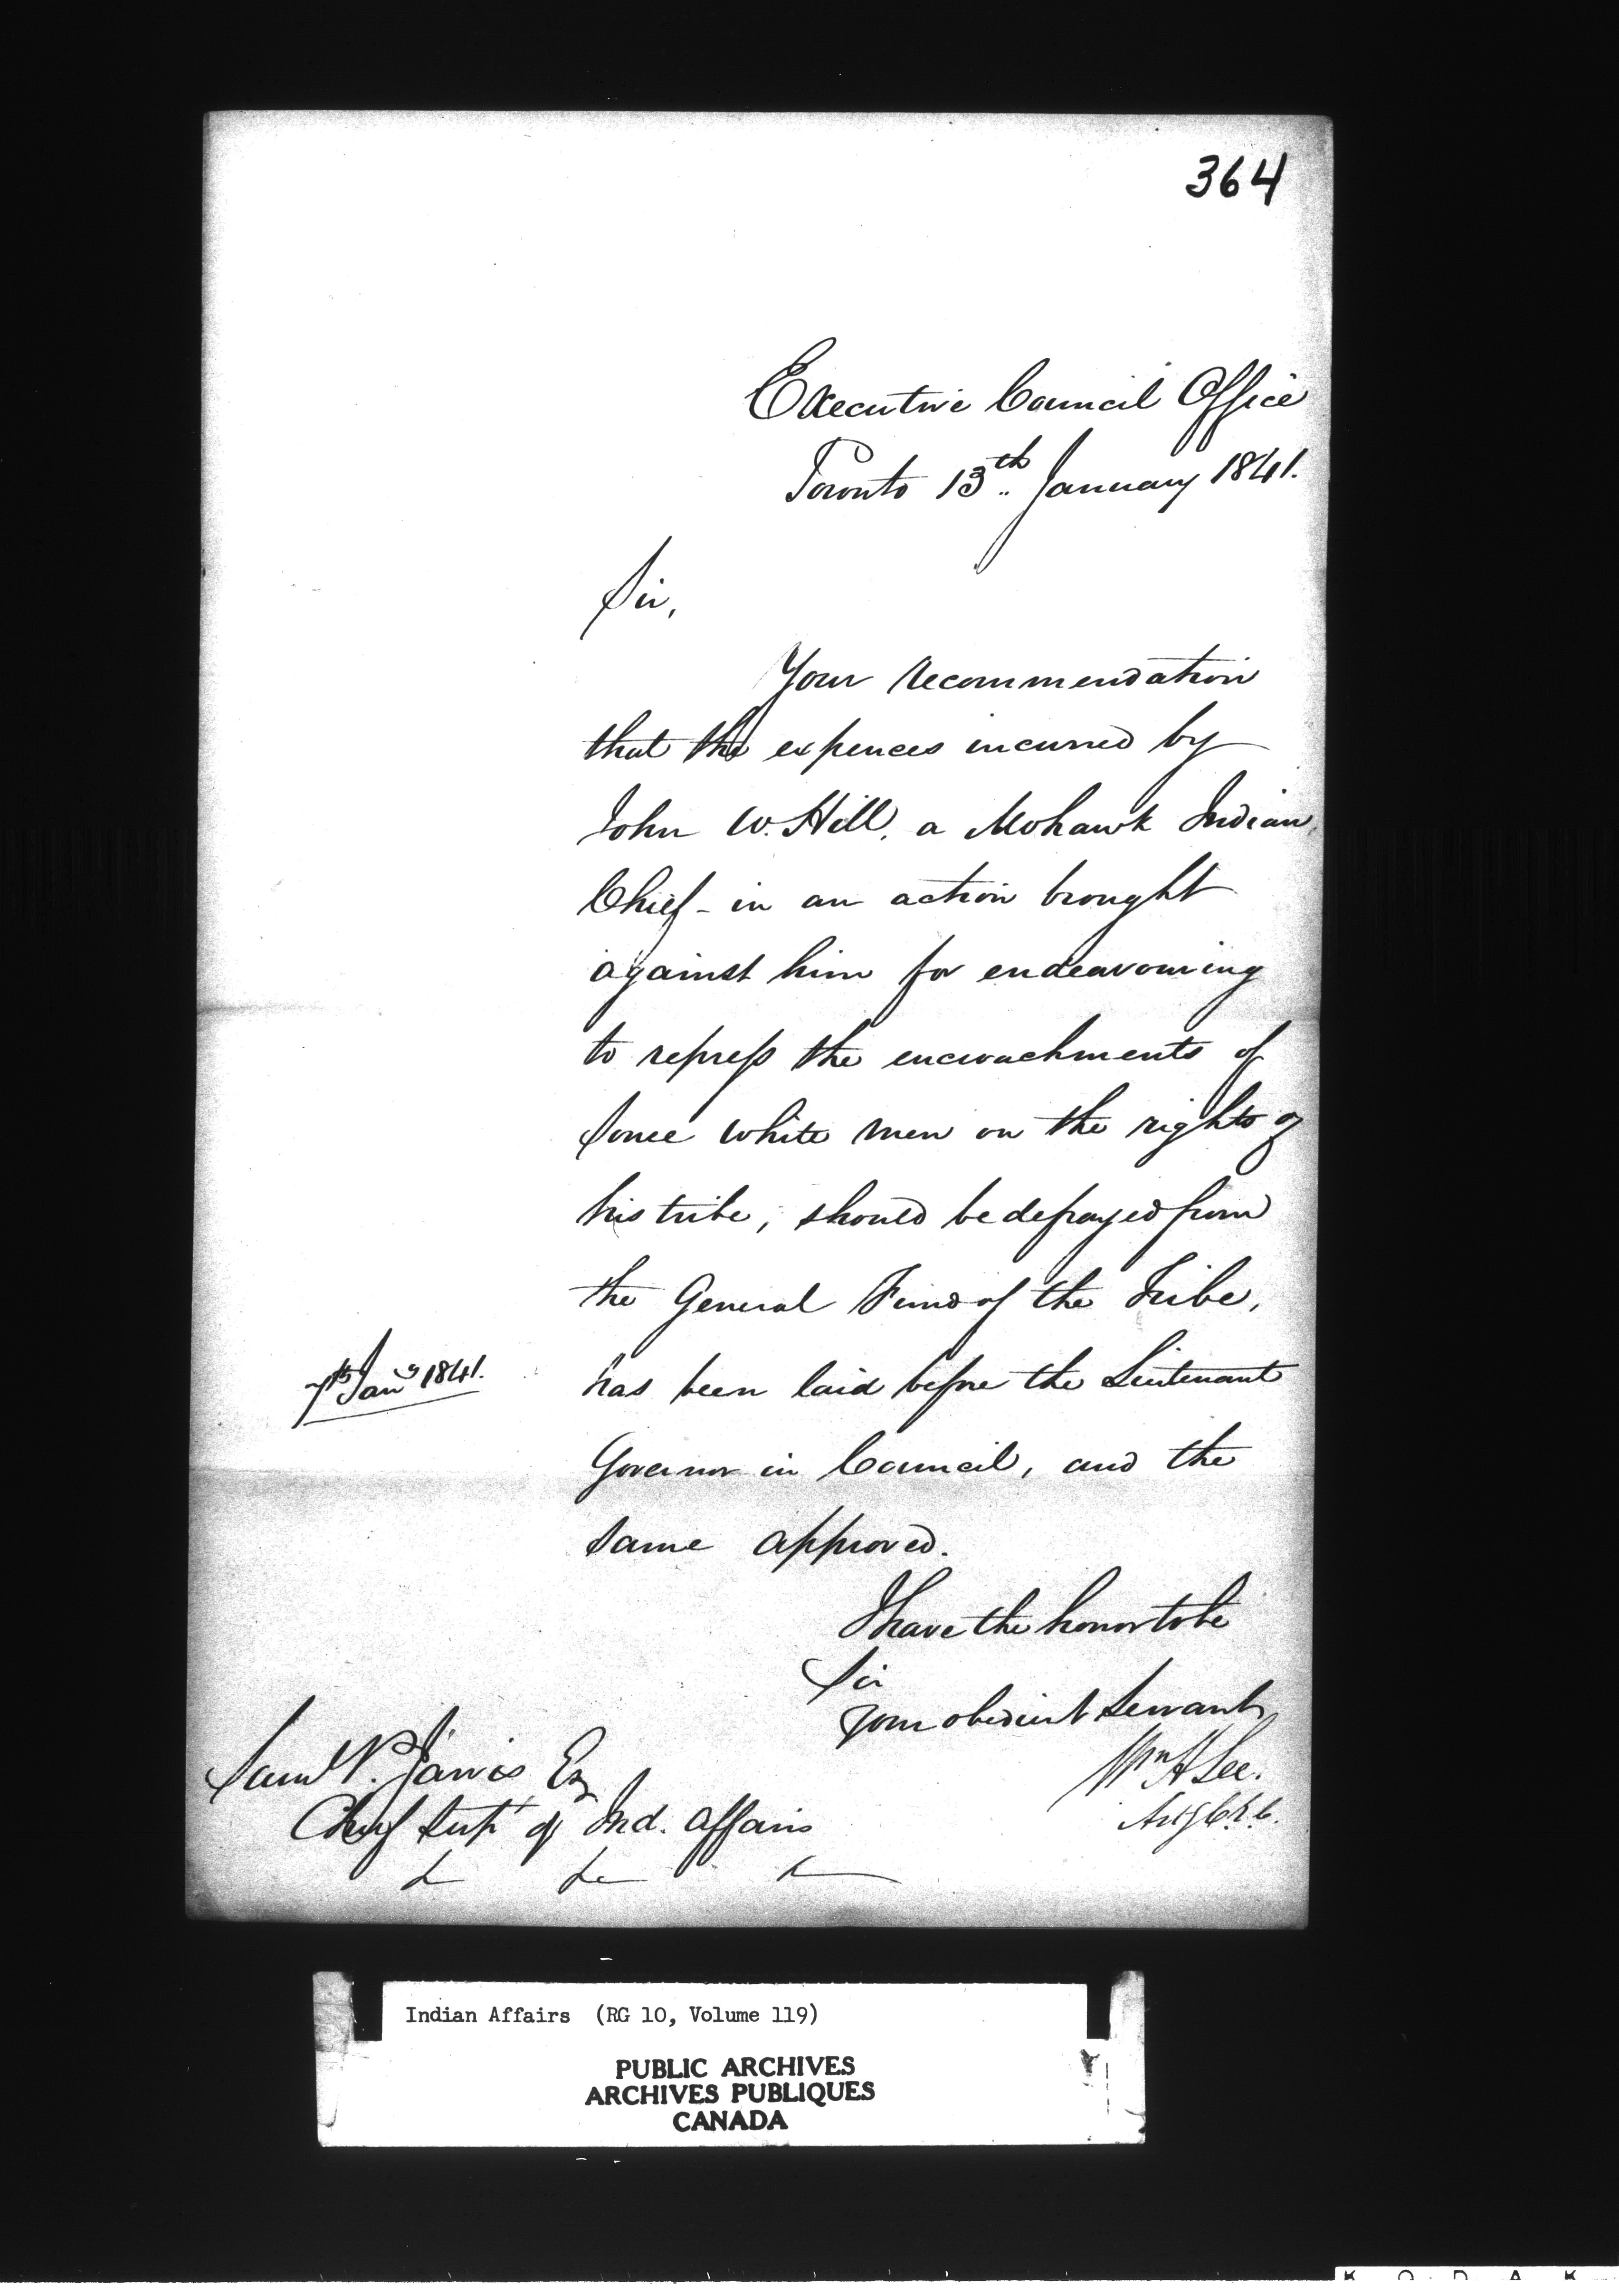 364
Executive Council Office
Toronto 13th January 1841.
Sir,
Your recommendation
that the expences incurred by
John W. Hill, a Mohawk Indian
Chief - in an action brought
against him for endeavouring
to repress the encroachments of
some white men on the rights of
his tribe, should be defrayed from
the General Fund of the Tribe,
7th Jany 1841.
has been laid before the Lieutenant
Governor in Council, and the
same approved.
I have the honor to be
Sir
Your obedient Servant
Wm H Lee.
Actg C.E.C.
Saml P. Jarvis Esq
Chief Supt of Ind. Affairs
& &c &c
Indian Affairs (RG 10, Volume 119)
PUBLIC ARCHIVES
ARCHIVES PUBLIQUES
CANADA
KODAK